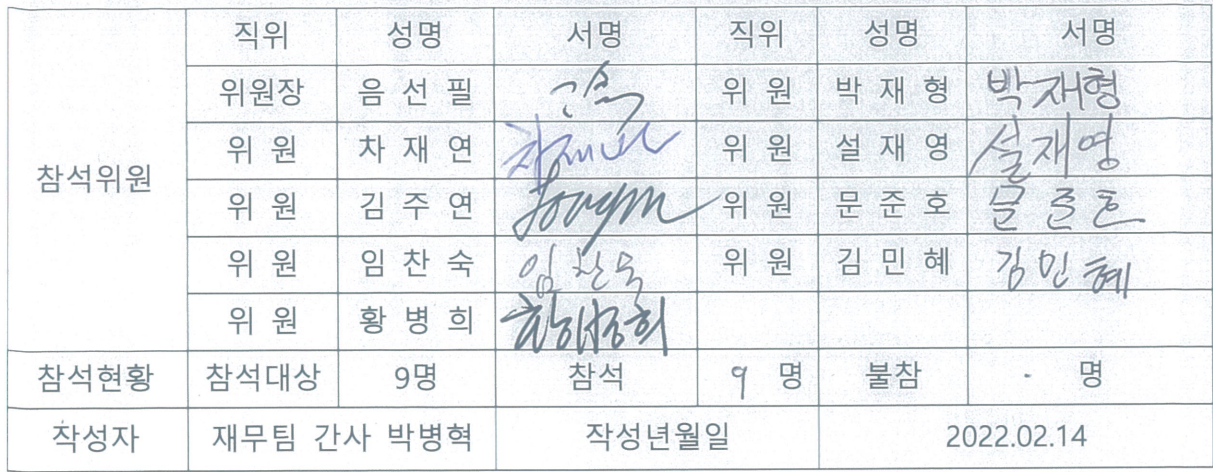 직위 성명 서명 직위 성명 서명
위원장 음 선 필 위 원 박 재 형 박재형
위 원 차 재 연 차재연 위 원 설 재 영 설재영
참석위원
위 원 김 주 연 위 원 문 준 호 문준호
위 원 임 찬 숙 임찬숙 위 원 김 민 혜 김민혜
위 원 황 병 희 황병희
참석현황 참석대상 9명 참석 9 명 불참 · 명
작성자 재무팀 간사 박병혁 작성년월일 2022.02.14